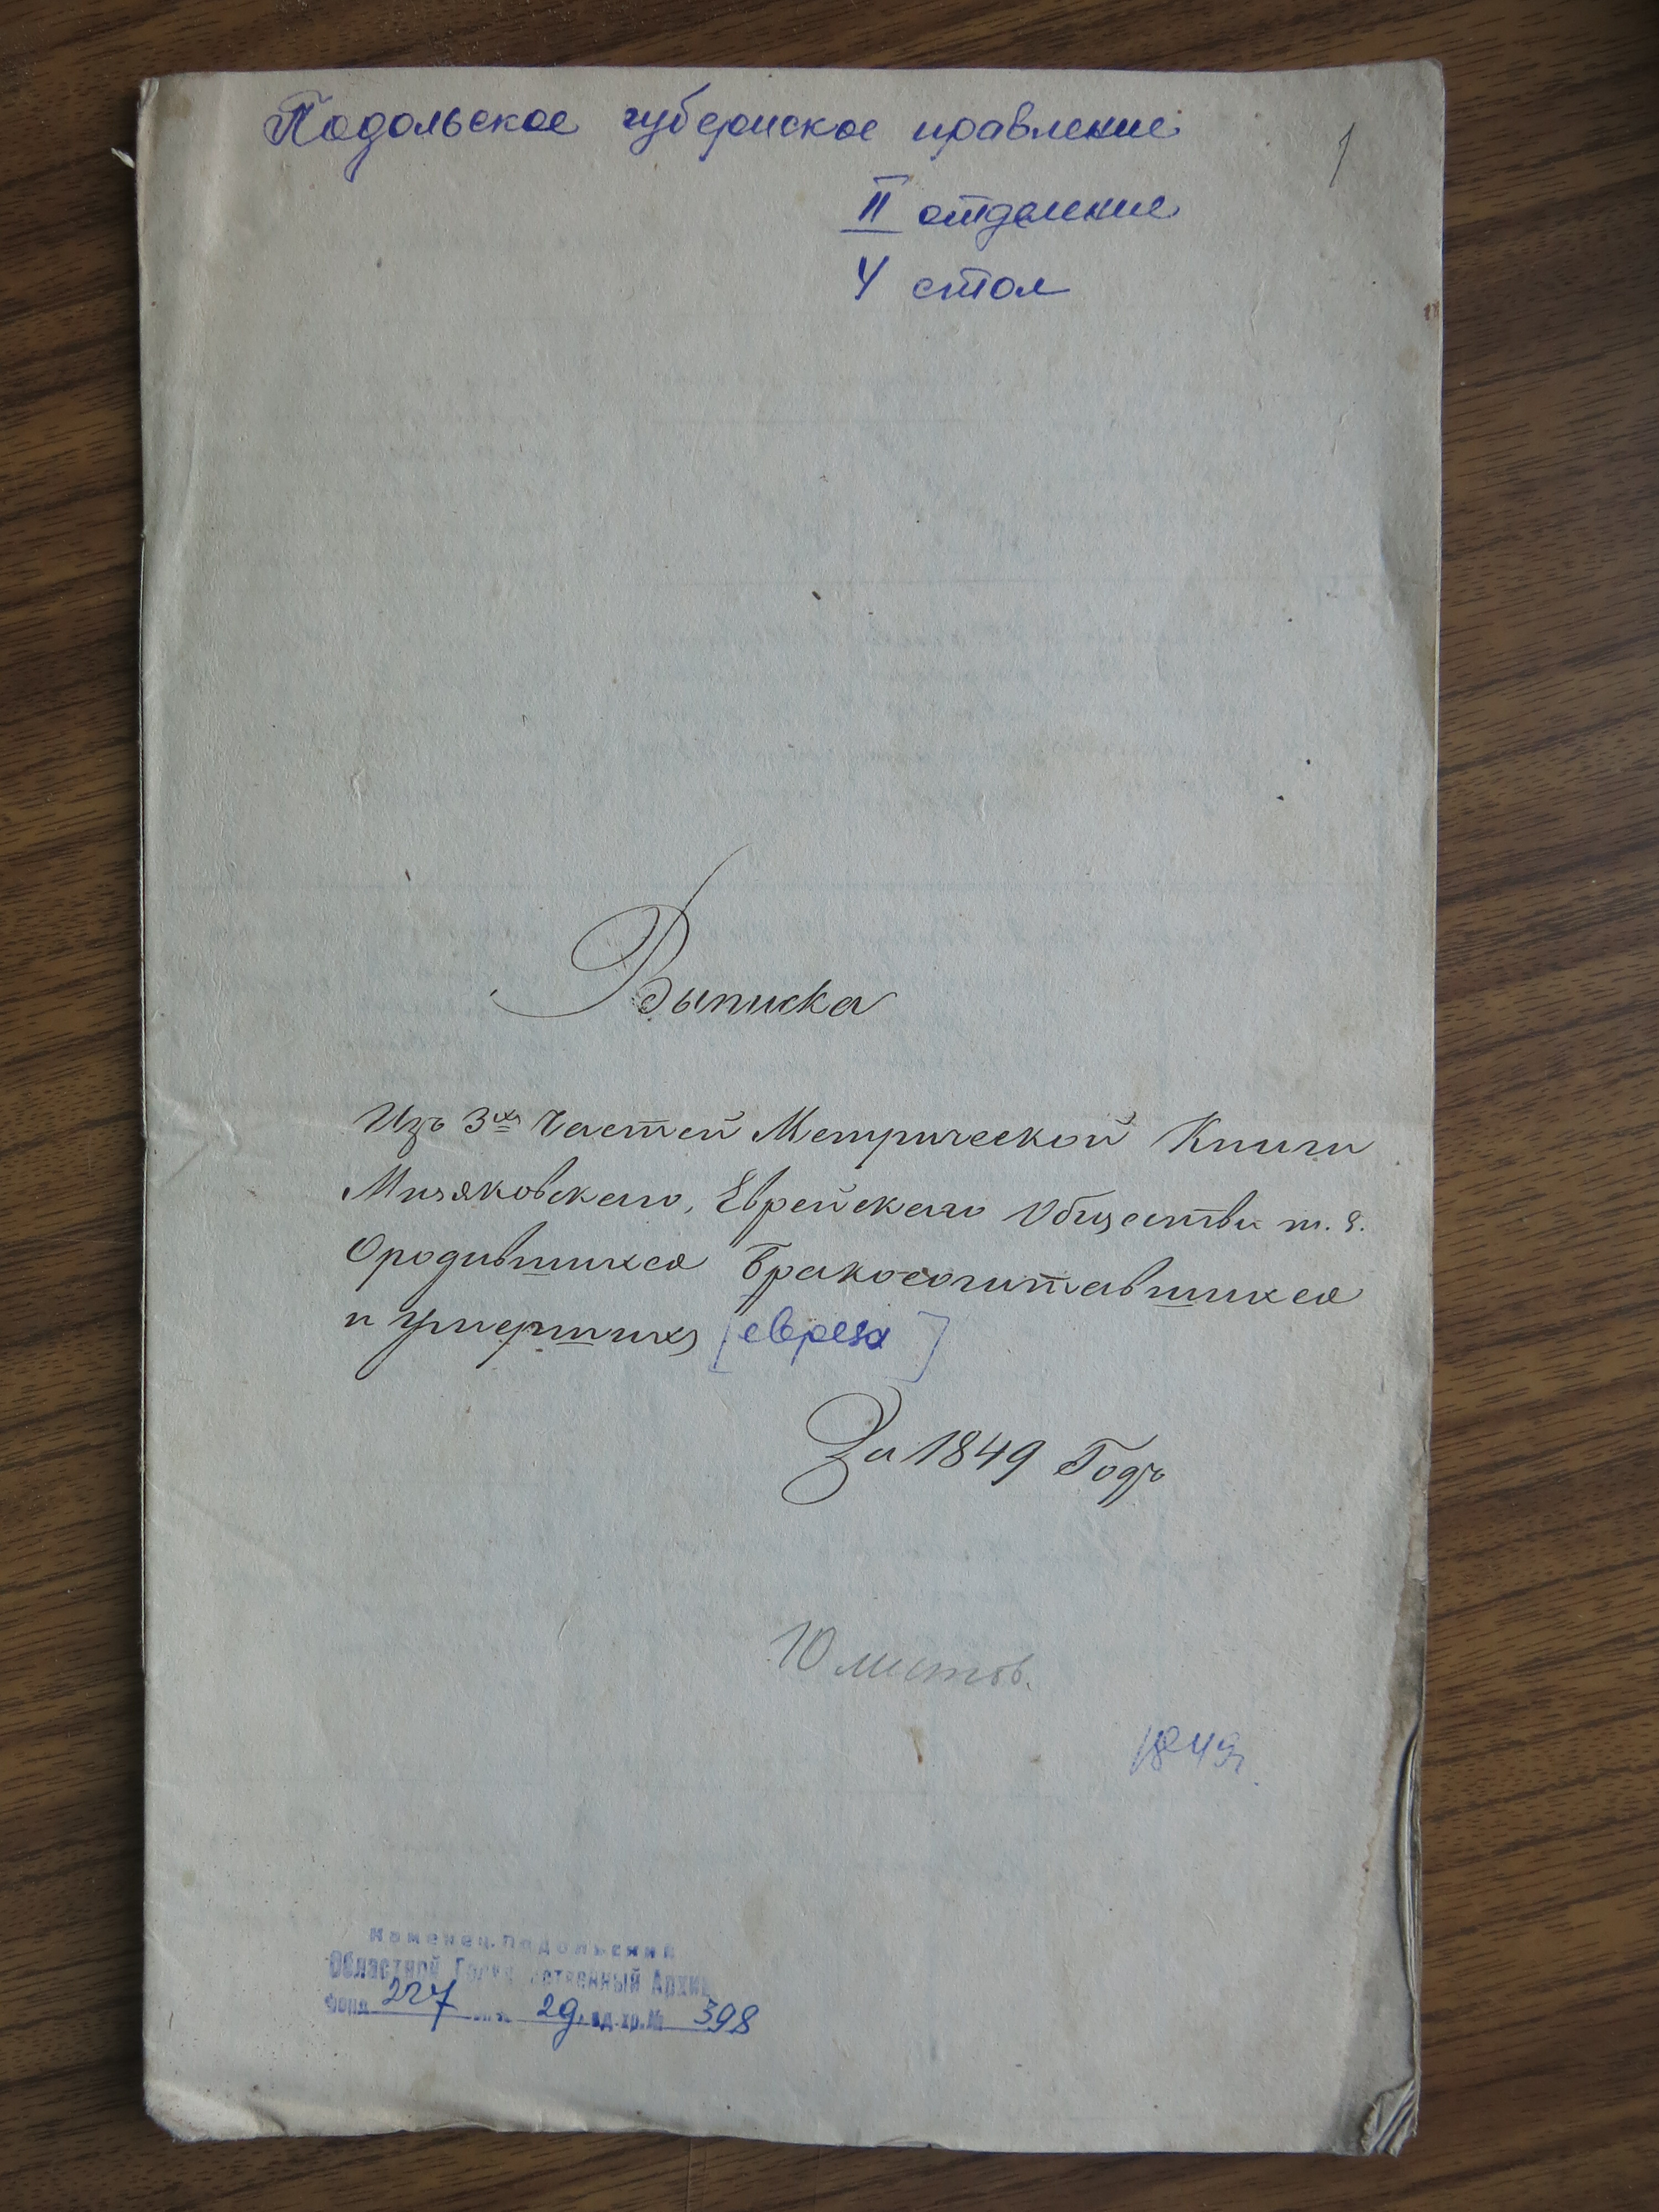 Подольское губернское правление
1
II отделение
4 стол
Выписка
Изъ 3хъ Частей Метрической Книги
Мизяковскаго, Еврейскаго Общества т. е.
Ородившихся Бракосочитавшихся
и умершихъ [евреях]
За 1849 Годъ
10 листов.
1849г.
Каменец-Подольский
Областной Государственный Архив
Фонд 227 оп. 2д, ед. хр. № 398